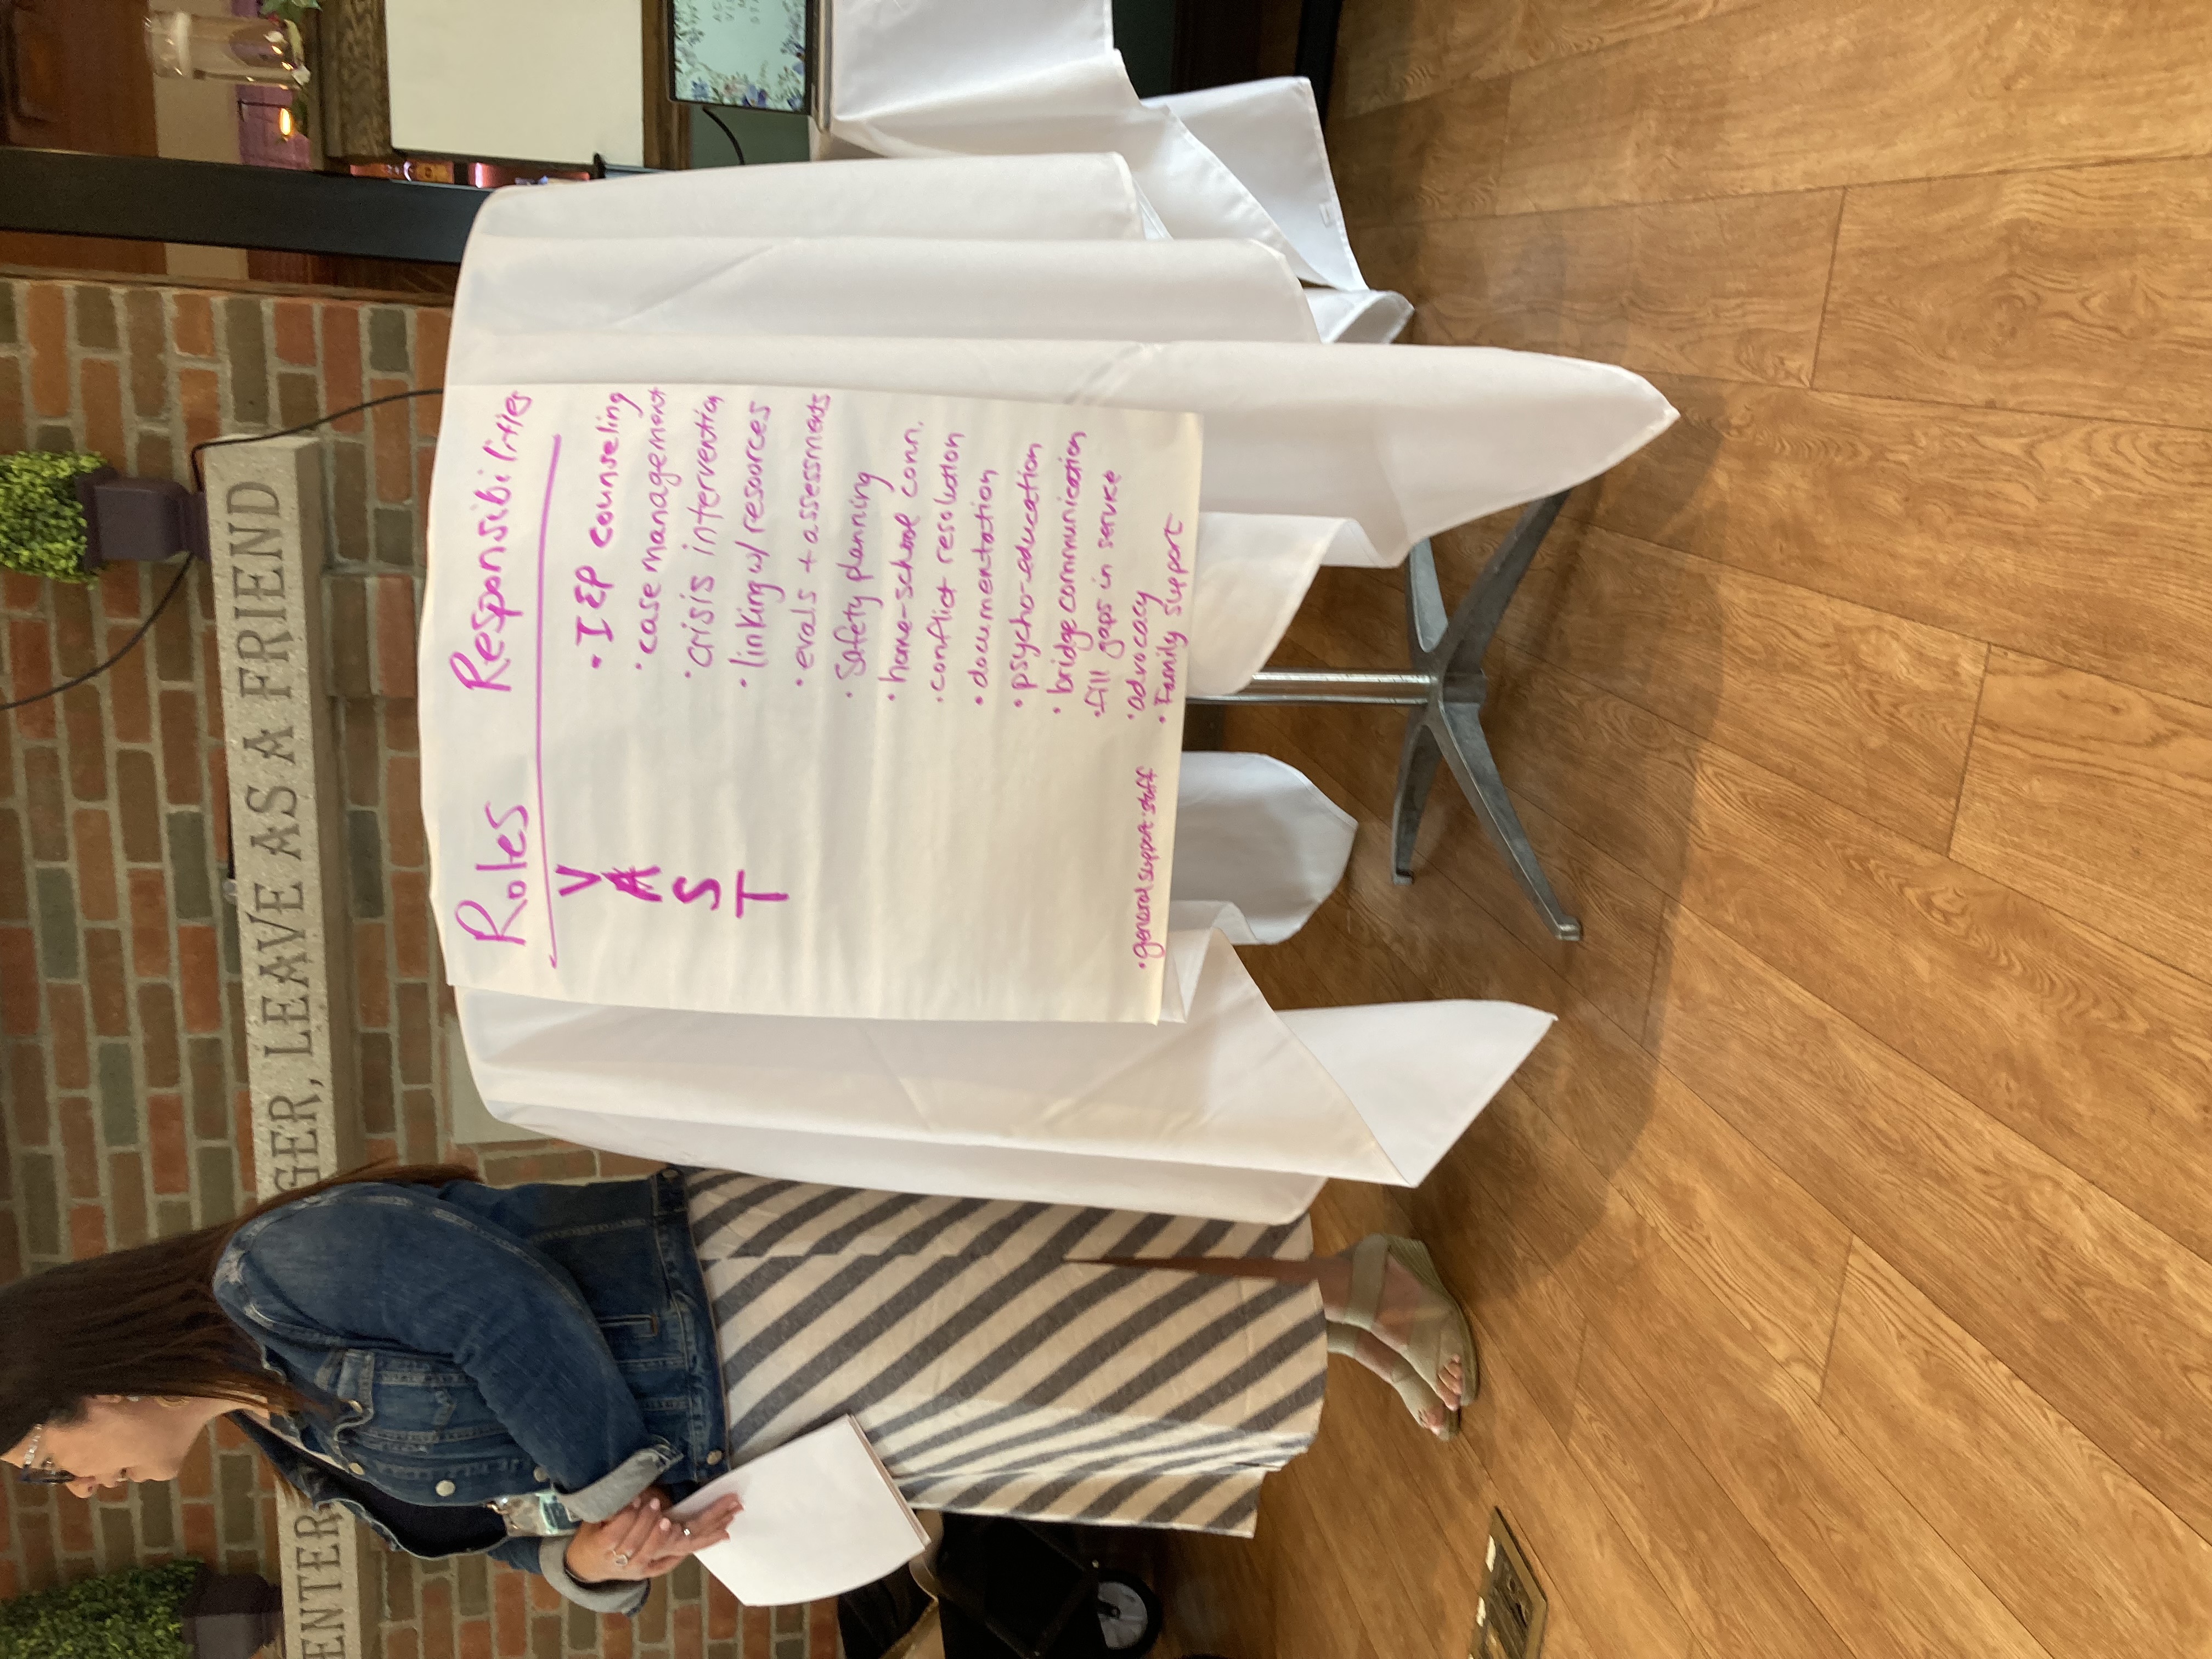 ENTER
GER, LEAVE AS A FRIEND
Roles Responsibilities
V
A
S
T
• IEP counseling
• case management
• crisis intervention
• linking w/ resources
• evals + assessments
• Safety planning
• home-school conn.
• conflict resolution
• documentation
• psycho-education
• bridge communication
• fill gaps in service
• advocacy
• Family support
• general support staff